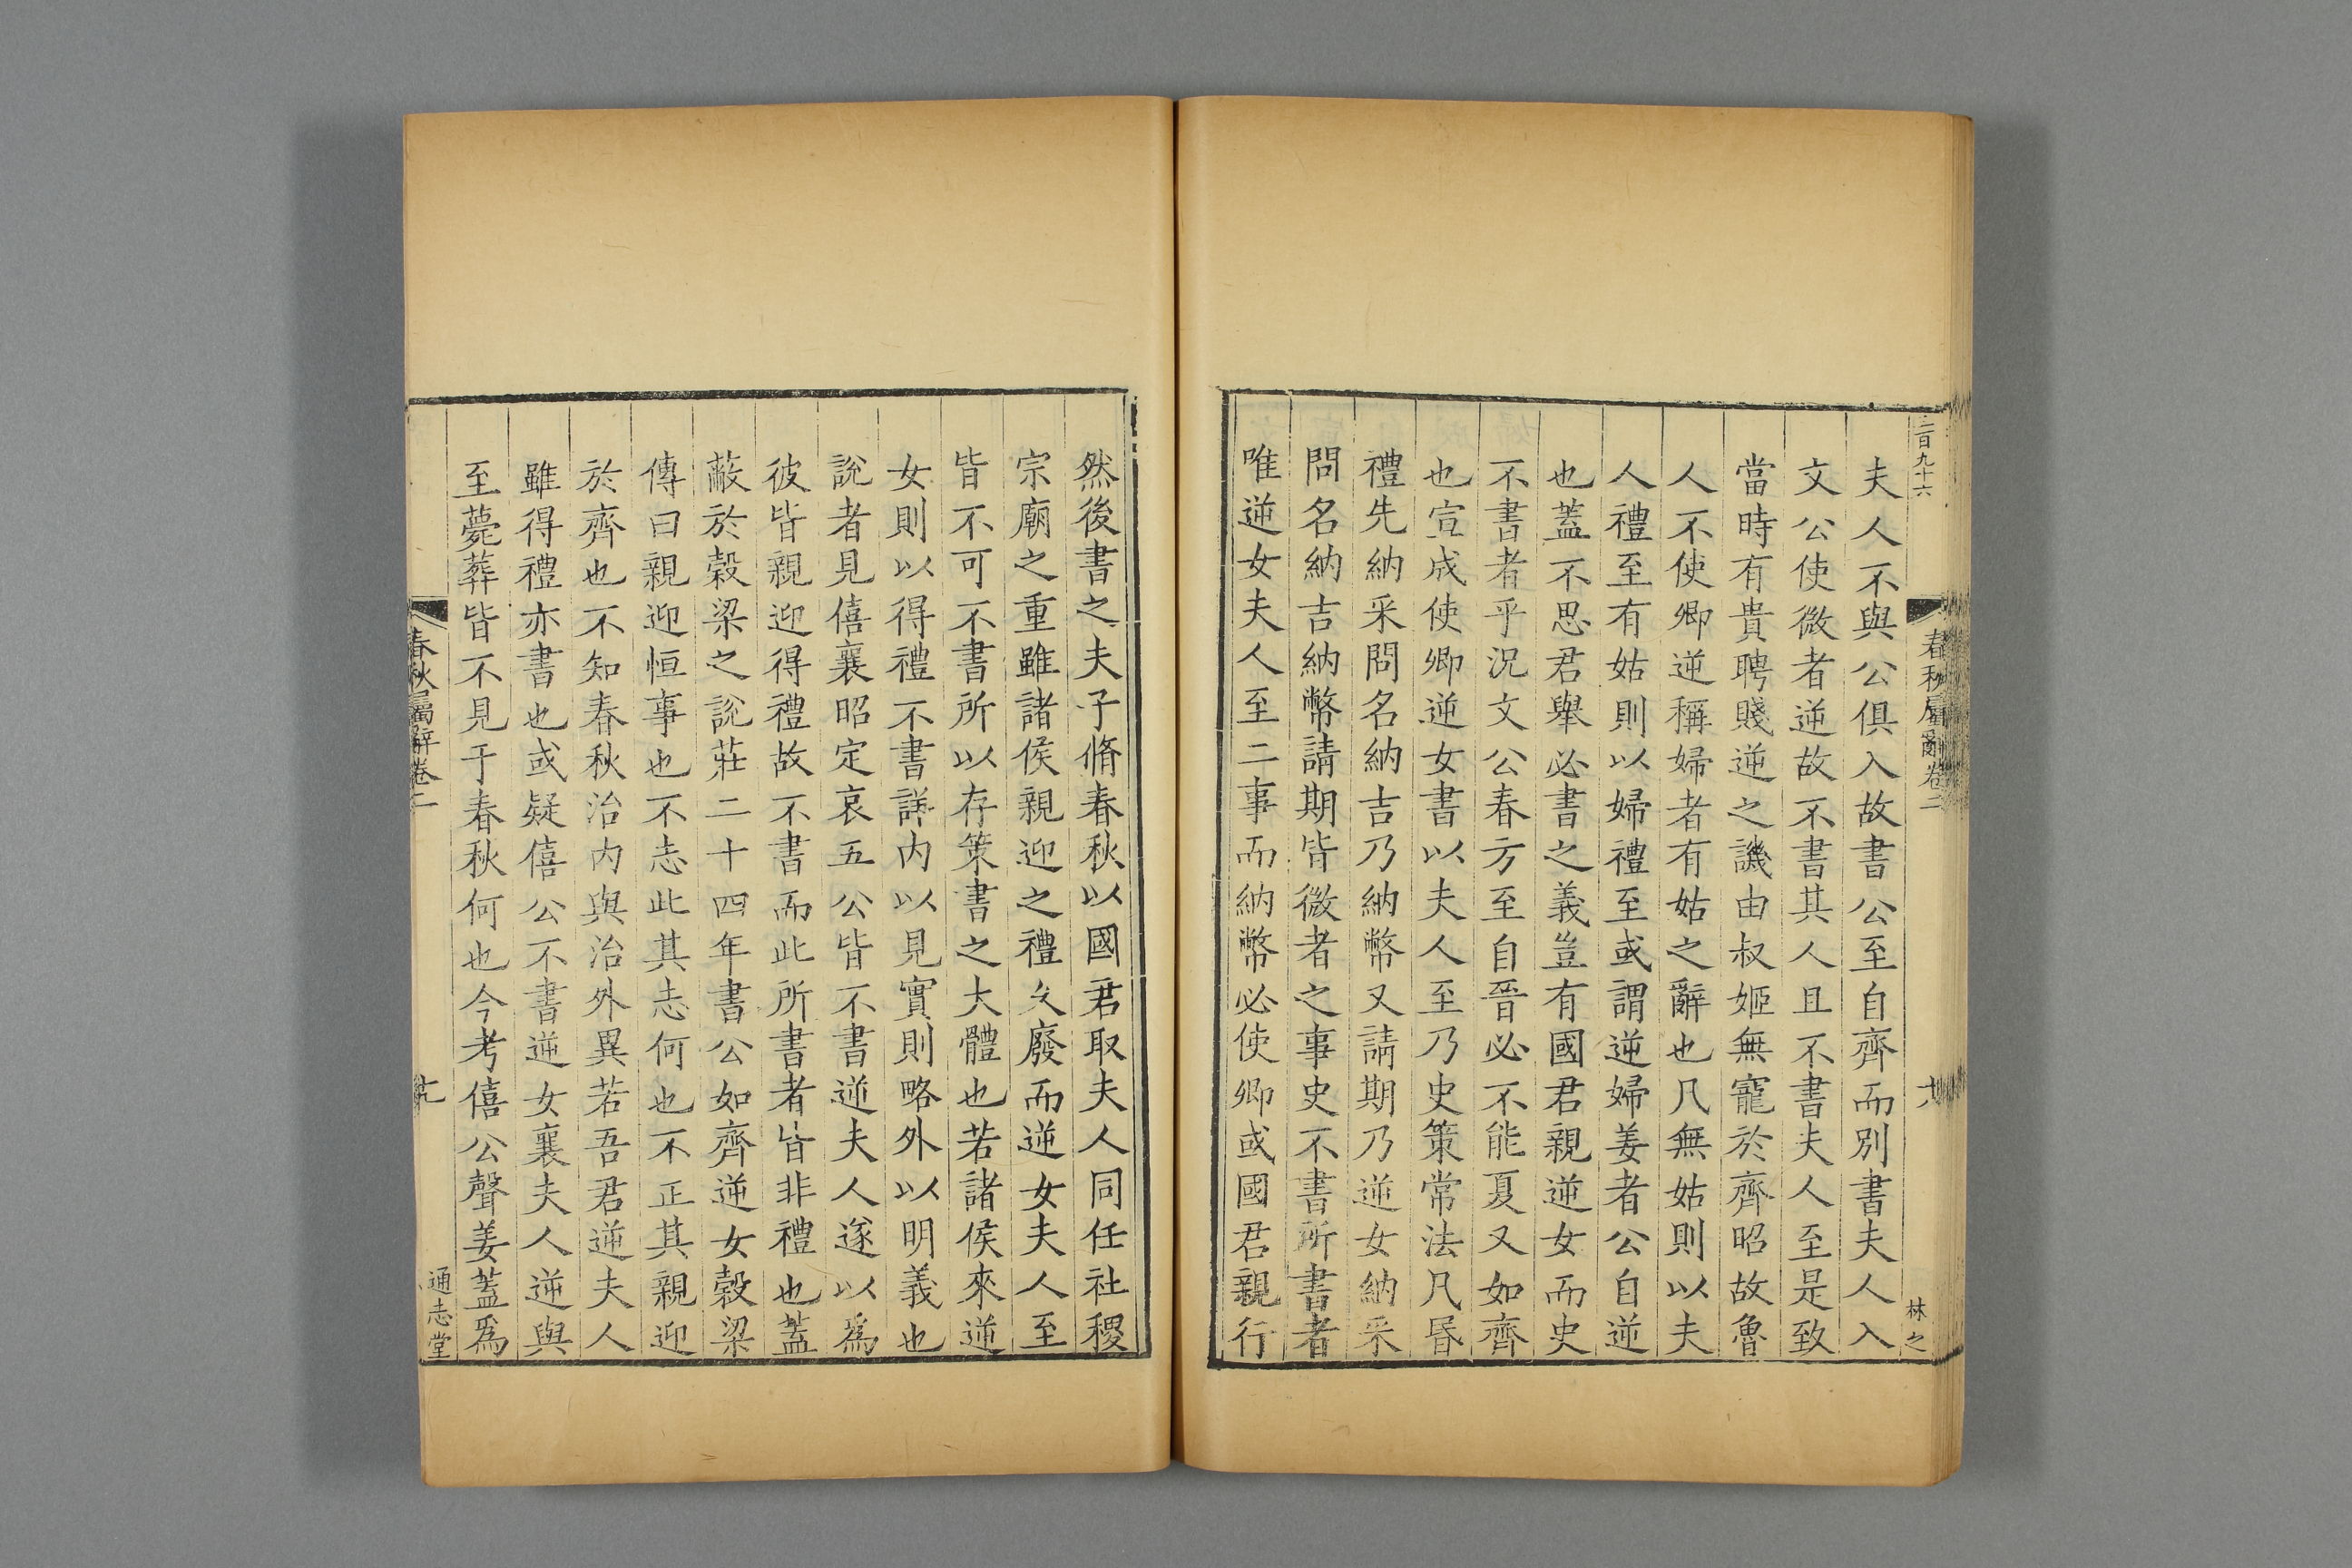 二百九十六
春秋屬辭卷二
十八
林之
夫人不與公俱入故書公至自齊而別書夫人入
文公使微者逆故不書其人且不書夫人至是致
當時有貴聘賤逆之譏由叔姬無寵於齊昭故魯
人不使卿逆稱婦者有姑之辭也凡無姑則以夫
人禮至有姑則以婦禮至或謂逆婦姜者公自逆
也蓋不思君舉必書之義豈有國君親逆女而史
不書者乎況文公春方至自晉必不能夏又如齊
也宣成使卿逆女書以夫人至乃史策常法凡昏
禮先納采問名納吉乃納幣又請期乃逆女納采
問名納吉納幣請期皆微者之事史不書所書者
唯逆女夫人至二事而納幣必使卿或國君親行
然後書之夫子脩春秋以國君取夫人同任社稷
宗廟之重雖諸侯親迎之禮久廢而逆女夫人至
皆不可不書所以存策書之大體也若諸侯來逆
女則以得禮不書詳內以見實則略外以明義也
說者見僖襄昭定哀五公皆不書逆夫人遂以爲
彼皆親迎得禮故不書而此所書者皆非禮也蓋
蔽於穀梁之說莊二十四年書公如齊逆女穀梁
傳曰親迎恒事也不志此其志何也不正其親迎
於齊也不知春秋治內與治外異若吾君逆夫人
雖得禮亦書也或疑僖公不書逆女襄夫人逆與
至薨葬皆不見于春秋何也今考僖公聲姜蓋爲
春秋屬辭卷二
通志堂